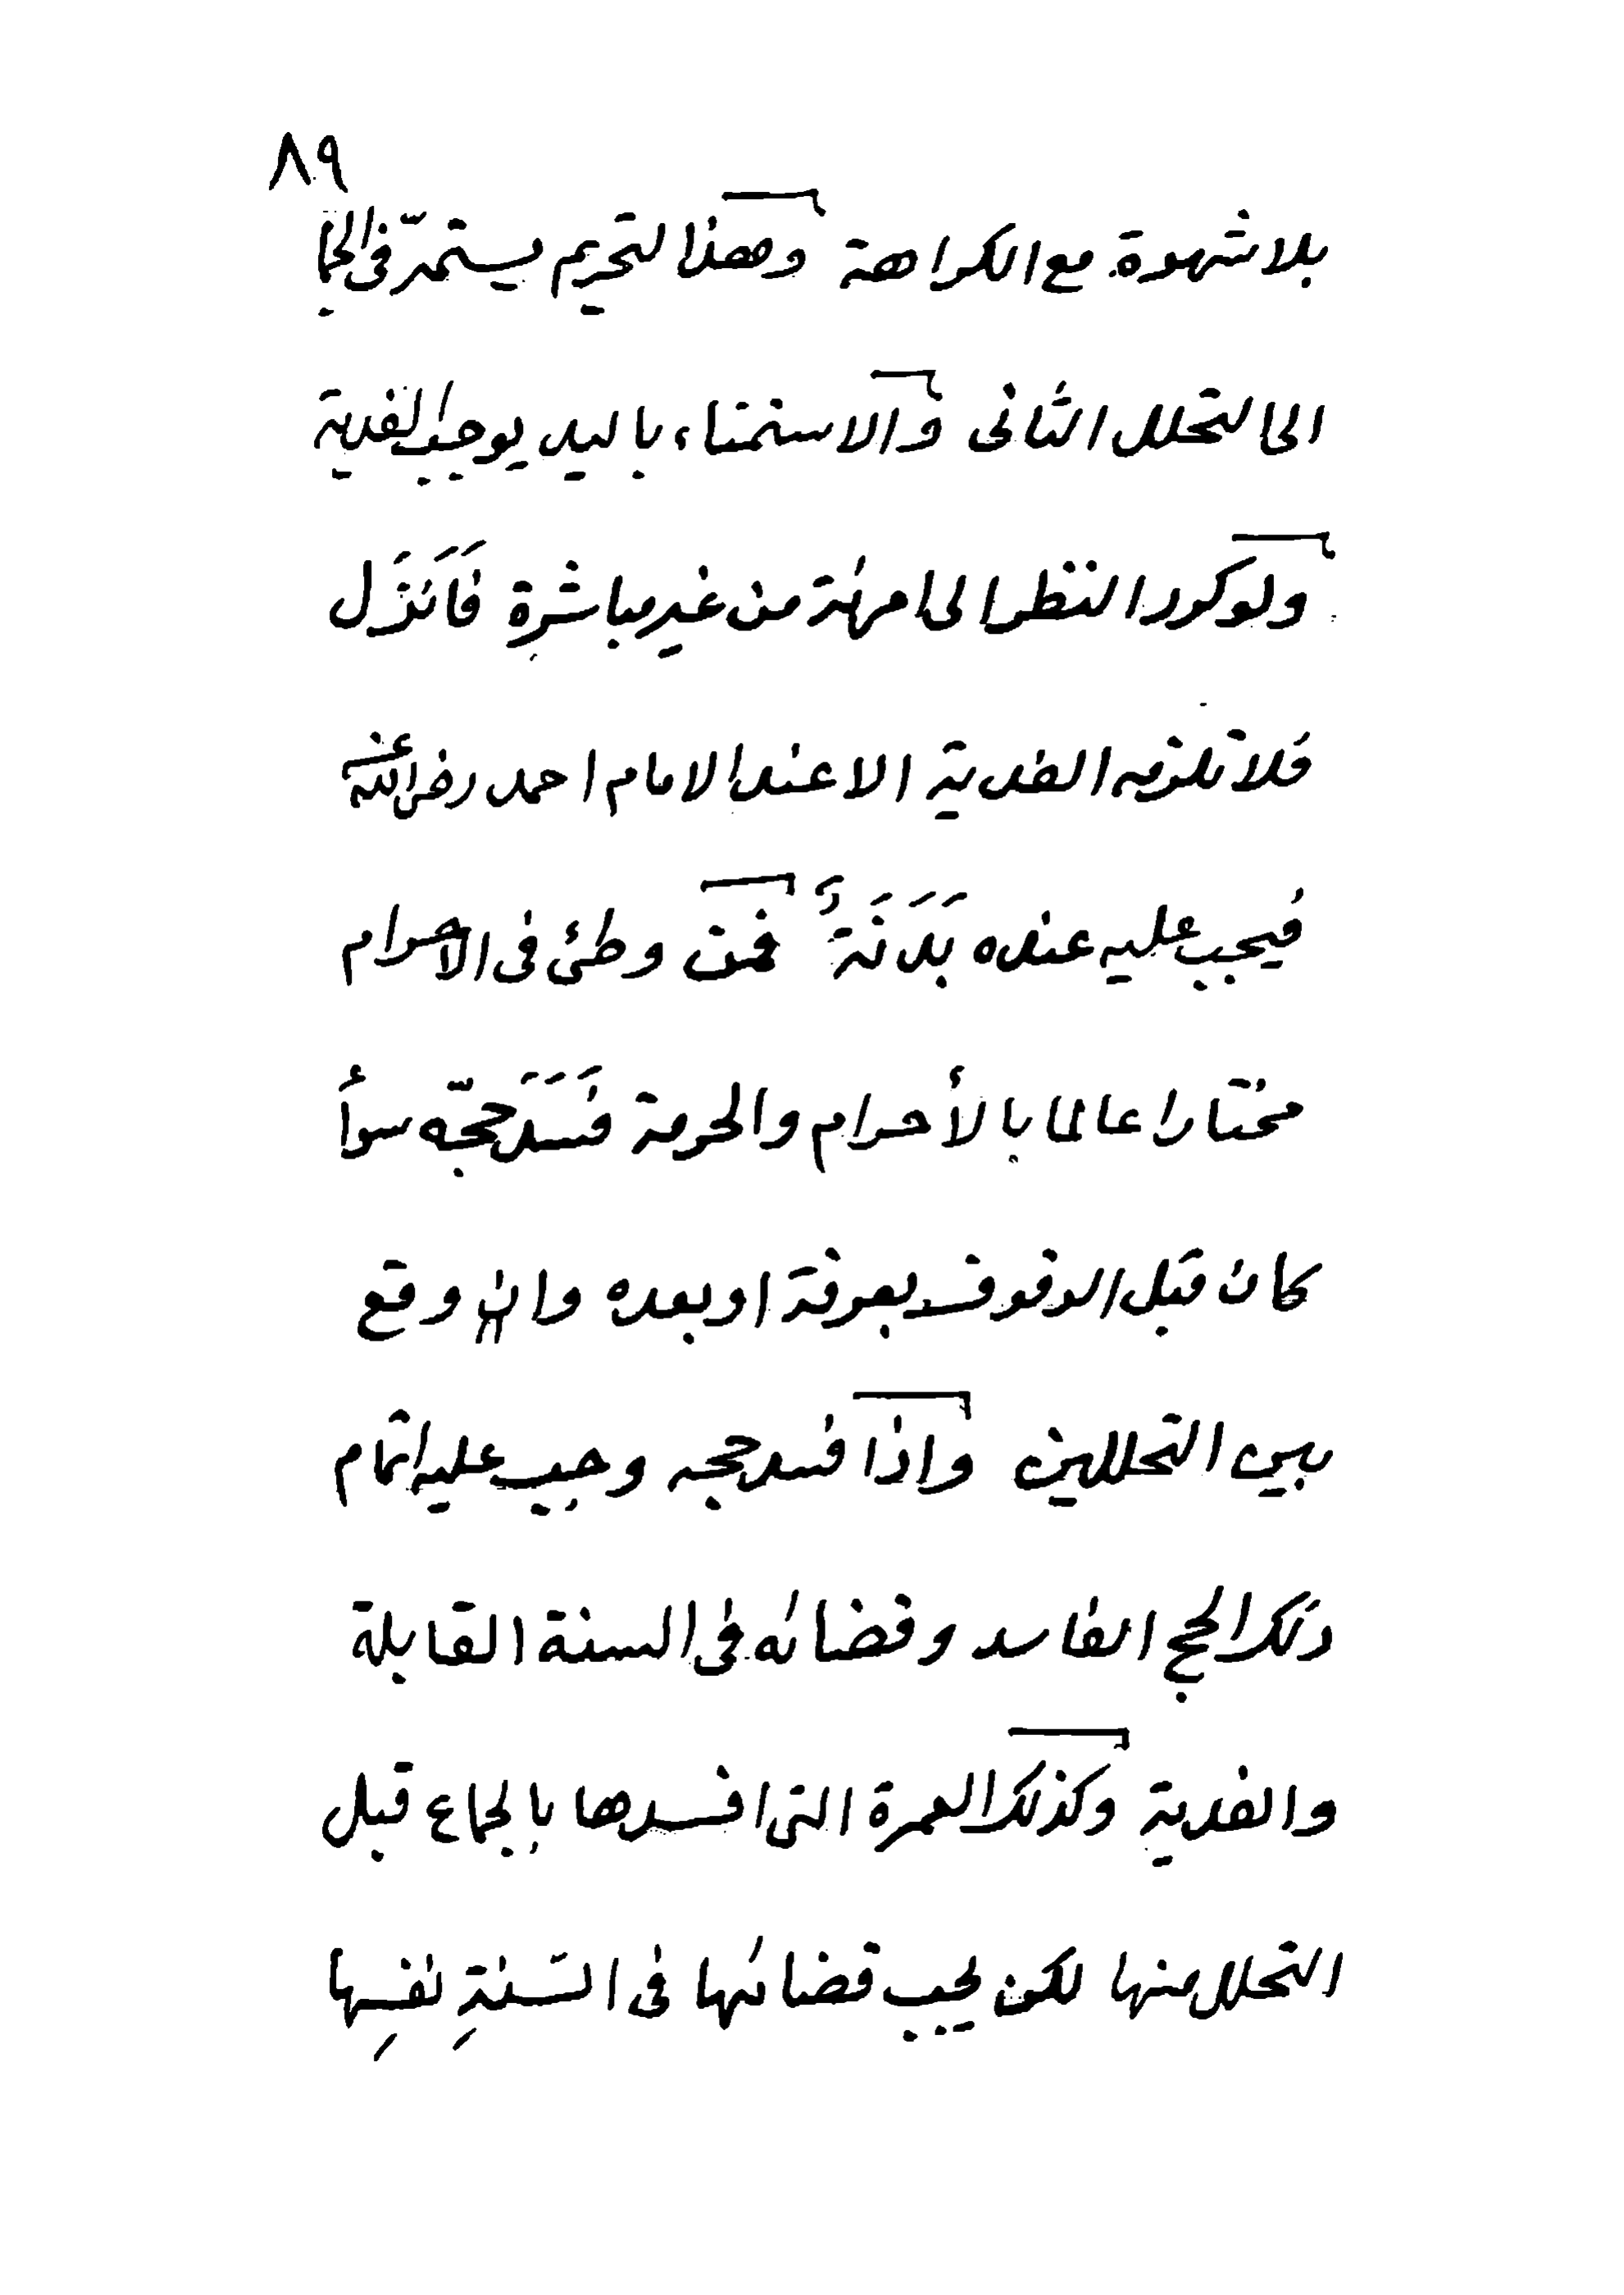 ٨٩
بلا شهوة مع الكراهة وهذا لتحريم يستمرّ فى الجا
الى التحلل الثانى والاستمناء باليد يوجب الفدية
ولو كرر النظر الى امرئة من غير مباشرة فَاَنزَل
فلا تلزمه الفدية الا عند الامام احمد رضى الله عنه
فيجب عليه عنده بَدَنَةٌ فمن وطئ فى الاحرام
مختارا عالما بالأحرام والحرمة فَسَدَ حجّه سوأ
كان قبل الوقوف بعرفة او بعده وان وقع
بين التحللين واذا فسد حجه وجب عليه اتمام
ذلك الحج الفاسد وقضائه فى السنة القابلة
والفدية وكذلك العمرة التى افسدها بالجماع قبل
التحلل منها لكن يجب قضائها فى السّنةِ نفسِها